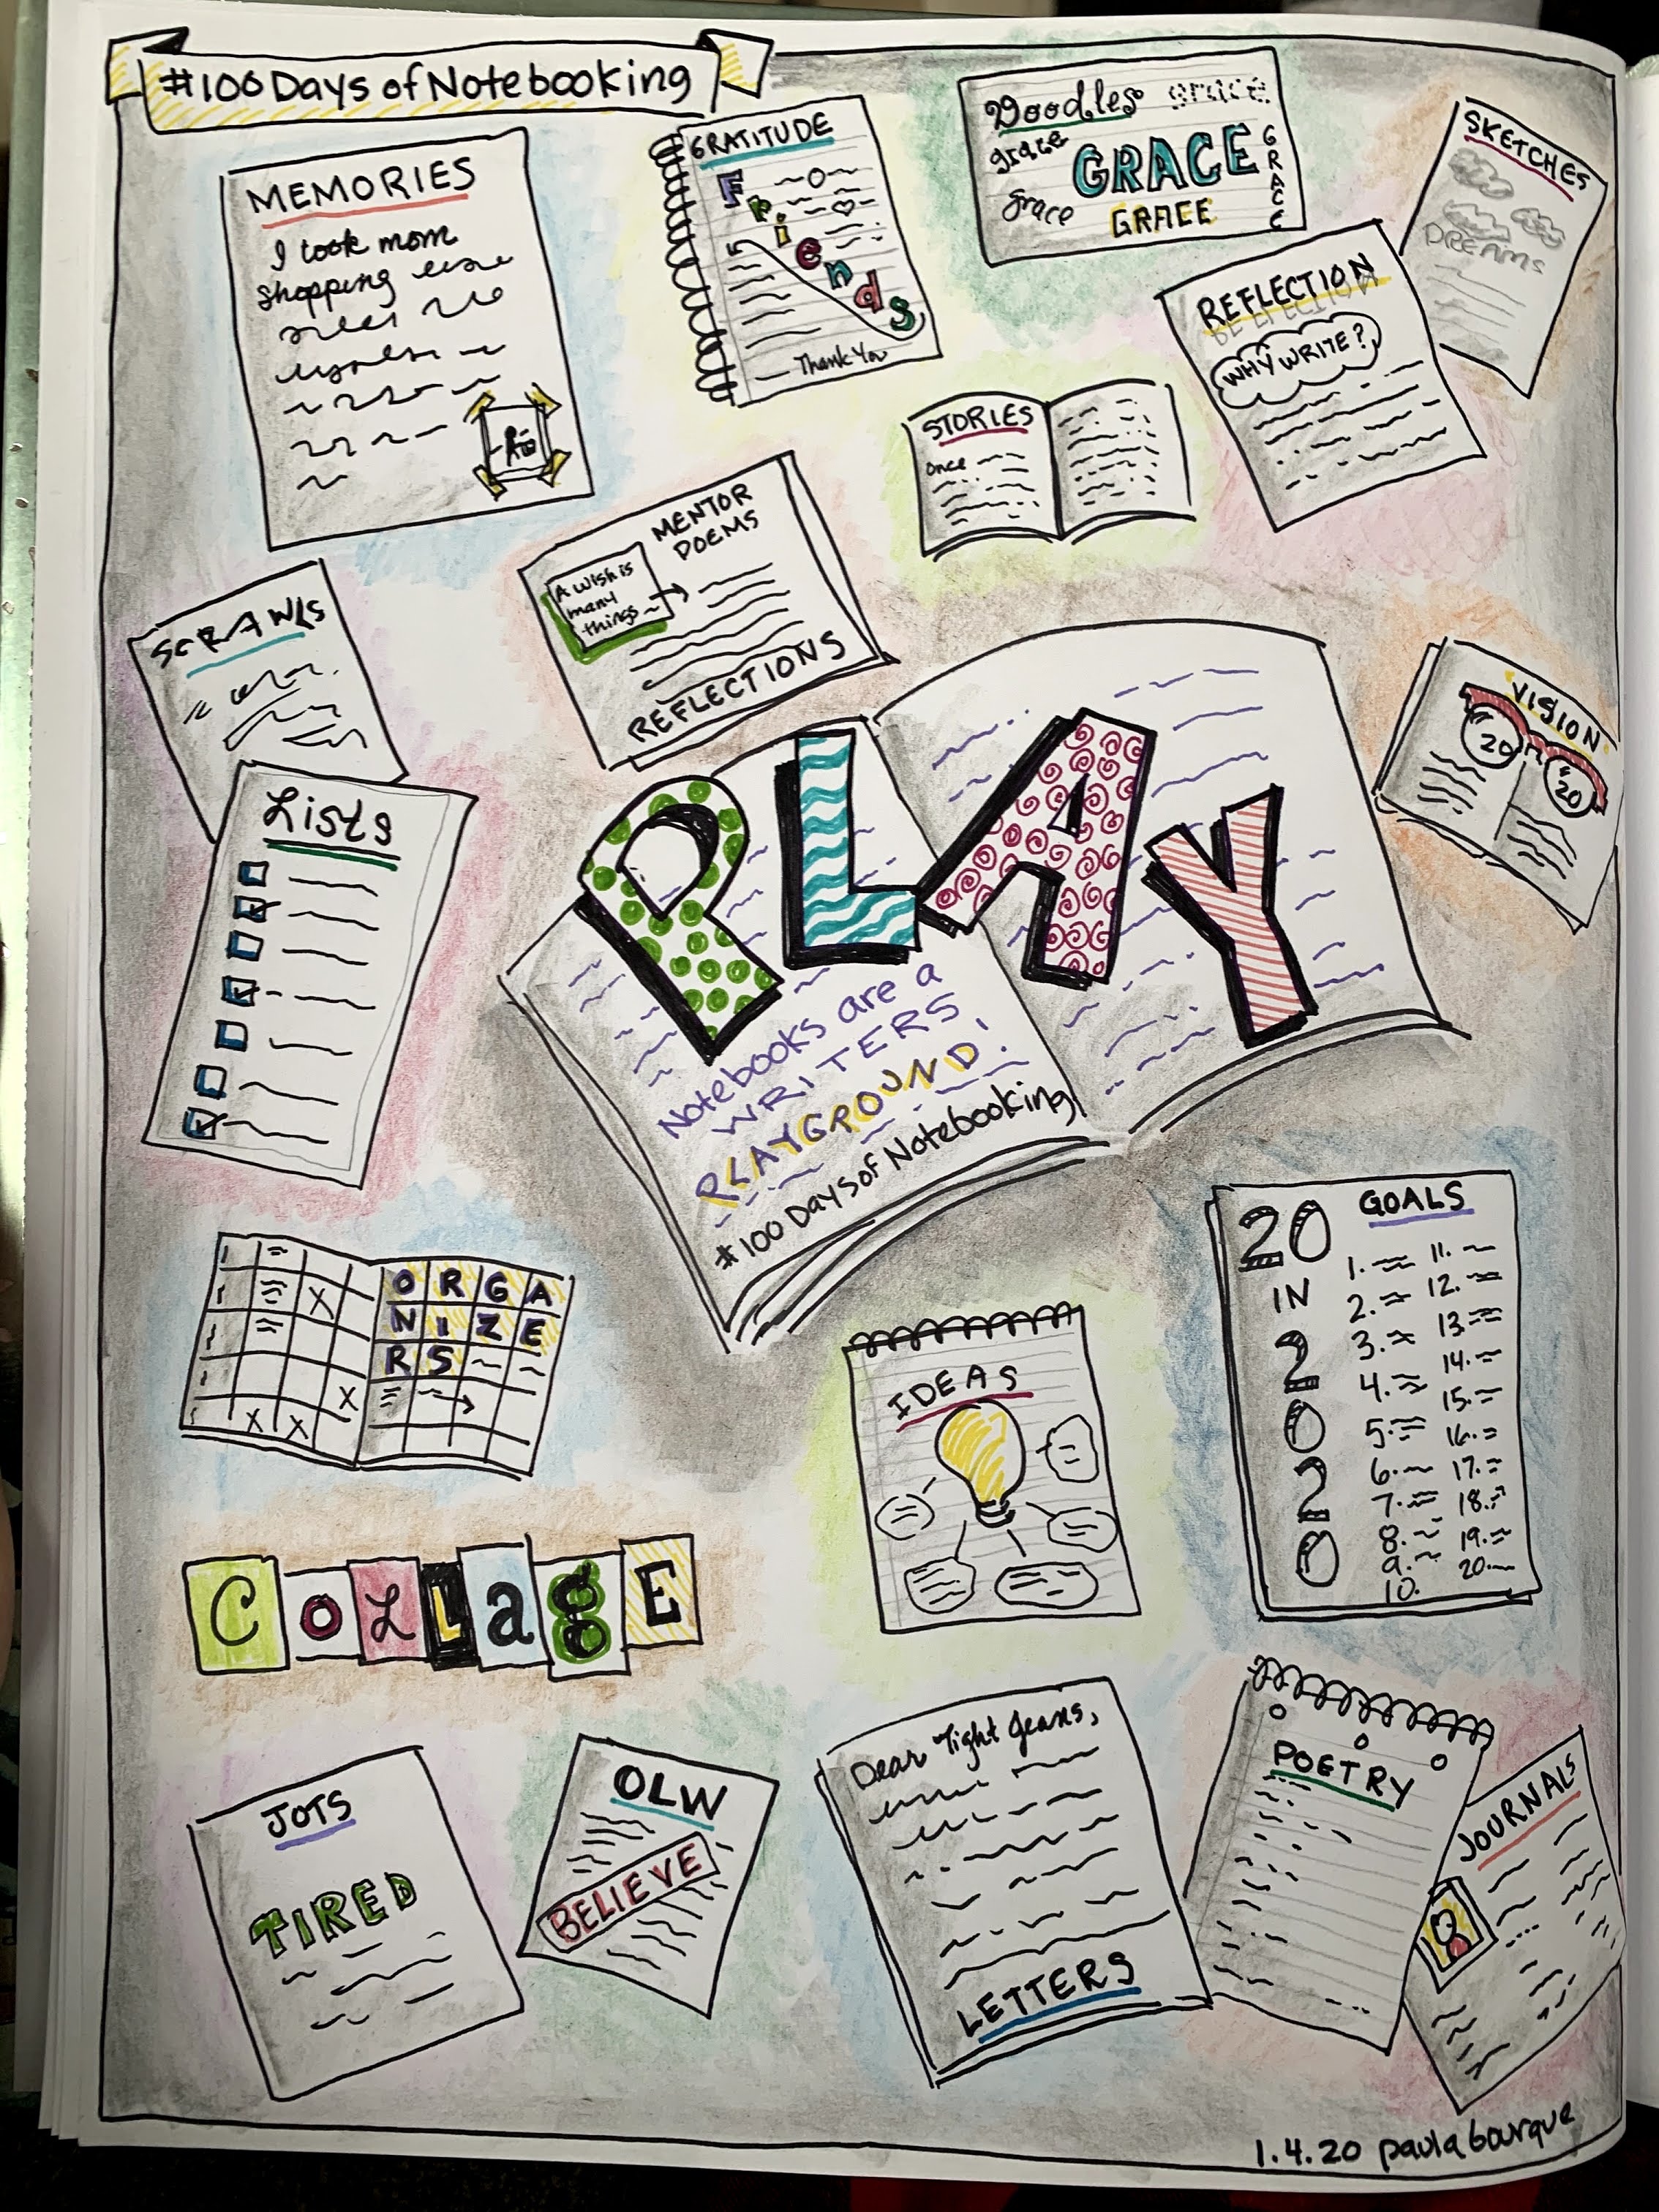 #100 Days of Notebooking
MEMORIES
I took mom
shopping
GRATITUDE
Friends
Thank You
Doodles grace
grace
GRACE
GRACE
grace
GRACE
SKETCHES
DREAMS
REFLECTION
REFLECTION
WHY WRITE?
STORIES
Once
MENTOR
POEMS
A wish is
many
things
REFLECTIONS
SCRAWLS
VISION
20
20
Lists
PLAY
Notebooks are a
WRITERS
PLAYGROUND!
#100 Days of Notebooking
ORGA
NIZE
RS
X
X
X X
20
IN
2
0
2
0
GOALS
1. 11.
2. 12.
3. 13.
4. 14.
5. 15.
6. 16.
7. 17.
8. 18.
9. 19.
10. 20.
IDEAS
CoLLagE
JOTS
TIRED
OLW
BELIEVE
Dear Tight Jeans,
LETTERS
POETRY
JOURNALS
1.4.20 paula bourque